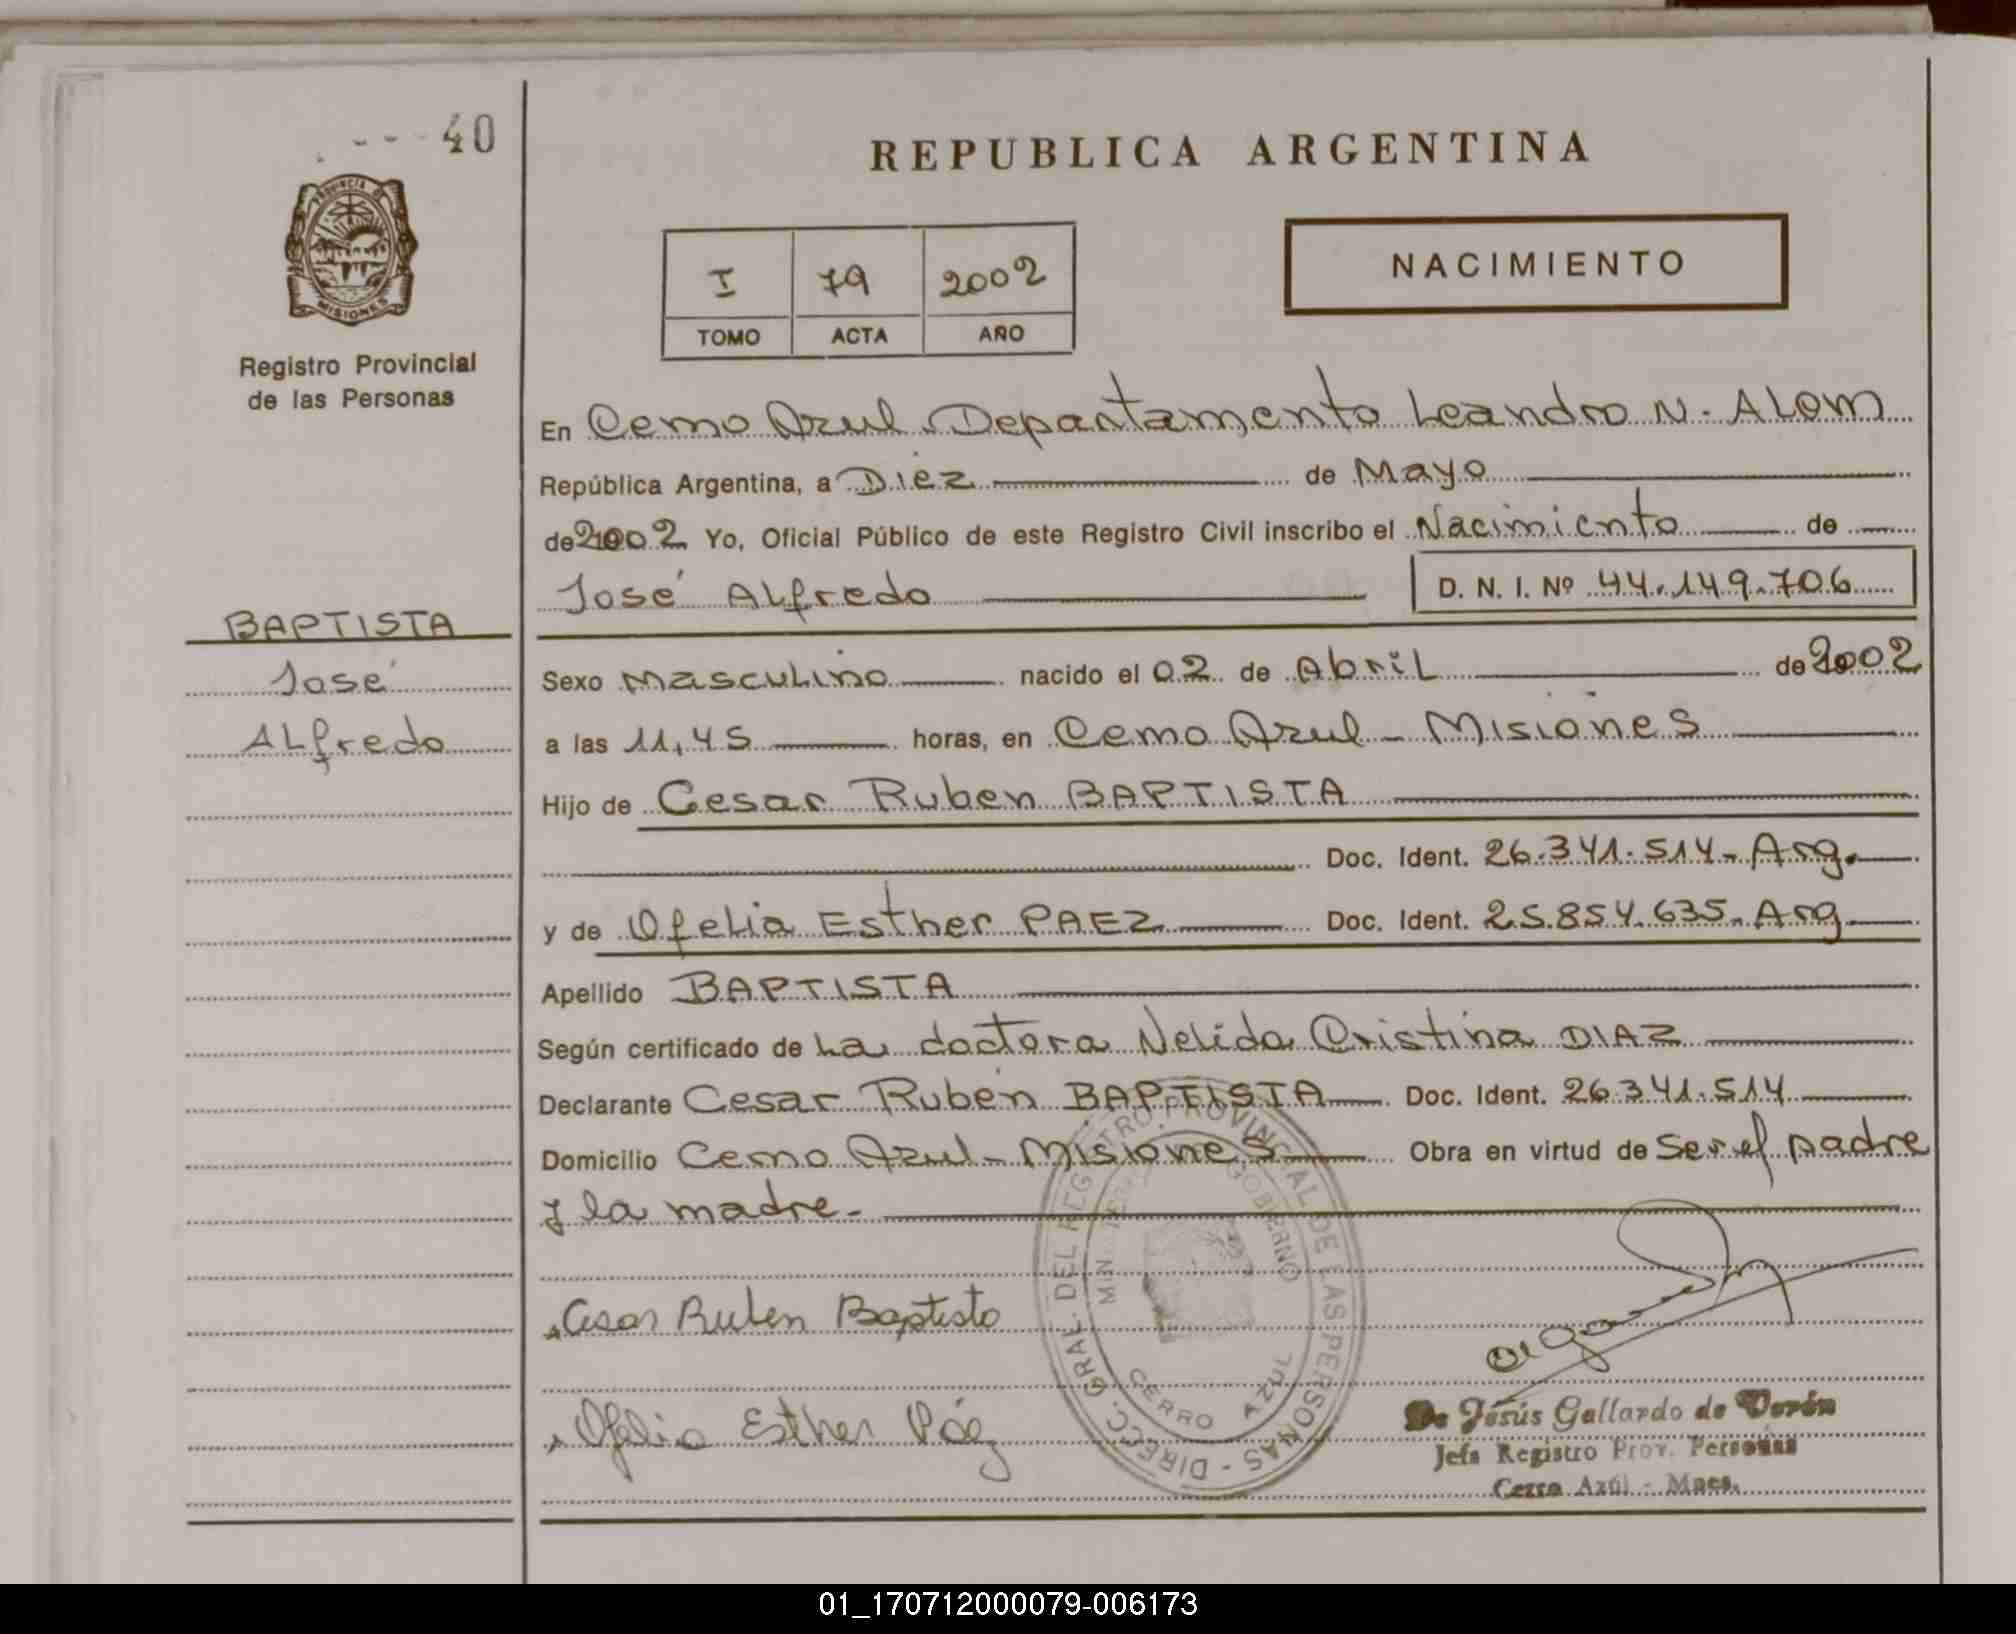 40
PROVINCIA DE
MISIONES
Registro Provincial
de las Personas
REPUBLICA ARGENTINA
I 79 2002
TOMO ACTA AÑO
NACIMIENTO
En Cerro Azul Departamento Leandro N. ALem
República Argentina, a Diez de Mayo
de 2002 Yo, Oficial Público de este Registro Civil inscribo el Nacimiento de
José ALfredo D. N. I. Nº 44.149.706
BAPTISTA
José
ALfredo
Sexo MascuLino nacido el 02 de AbriL de 2002
a las 11,45 horas, en Cerro Azul - Misiones
Hijo de Cesar Ruben BAPTISTA
Doc. Ident. 26.341.514- Arg.
y de OfeLia Esther PAEZ Doc. Ident. 25.854.635- Arg
Apellido BAPTISTA
Según certificado de La doctora Nelida Cristina DIAZ
Declarante Cesar Ruben BAPTISTA Doc. Ident. 26.341.514
Domicilio Cerro Azul - Misiones Obra en virtud de ser el padre
y la madre.
DIRECC. GRAL. DEL REGISTRO PROVINCIAL DE LAS PERSONAS -
GOBIERNO
CERRO AZUL
Cesar Ruben Baptista
Ofelia Esther Páez
De Jesús Gallardo de Verón
Jefa Registro Prov. Personas
Cerro Azúl - Mnes.
01_170712000079-006173